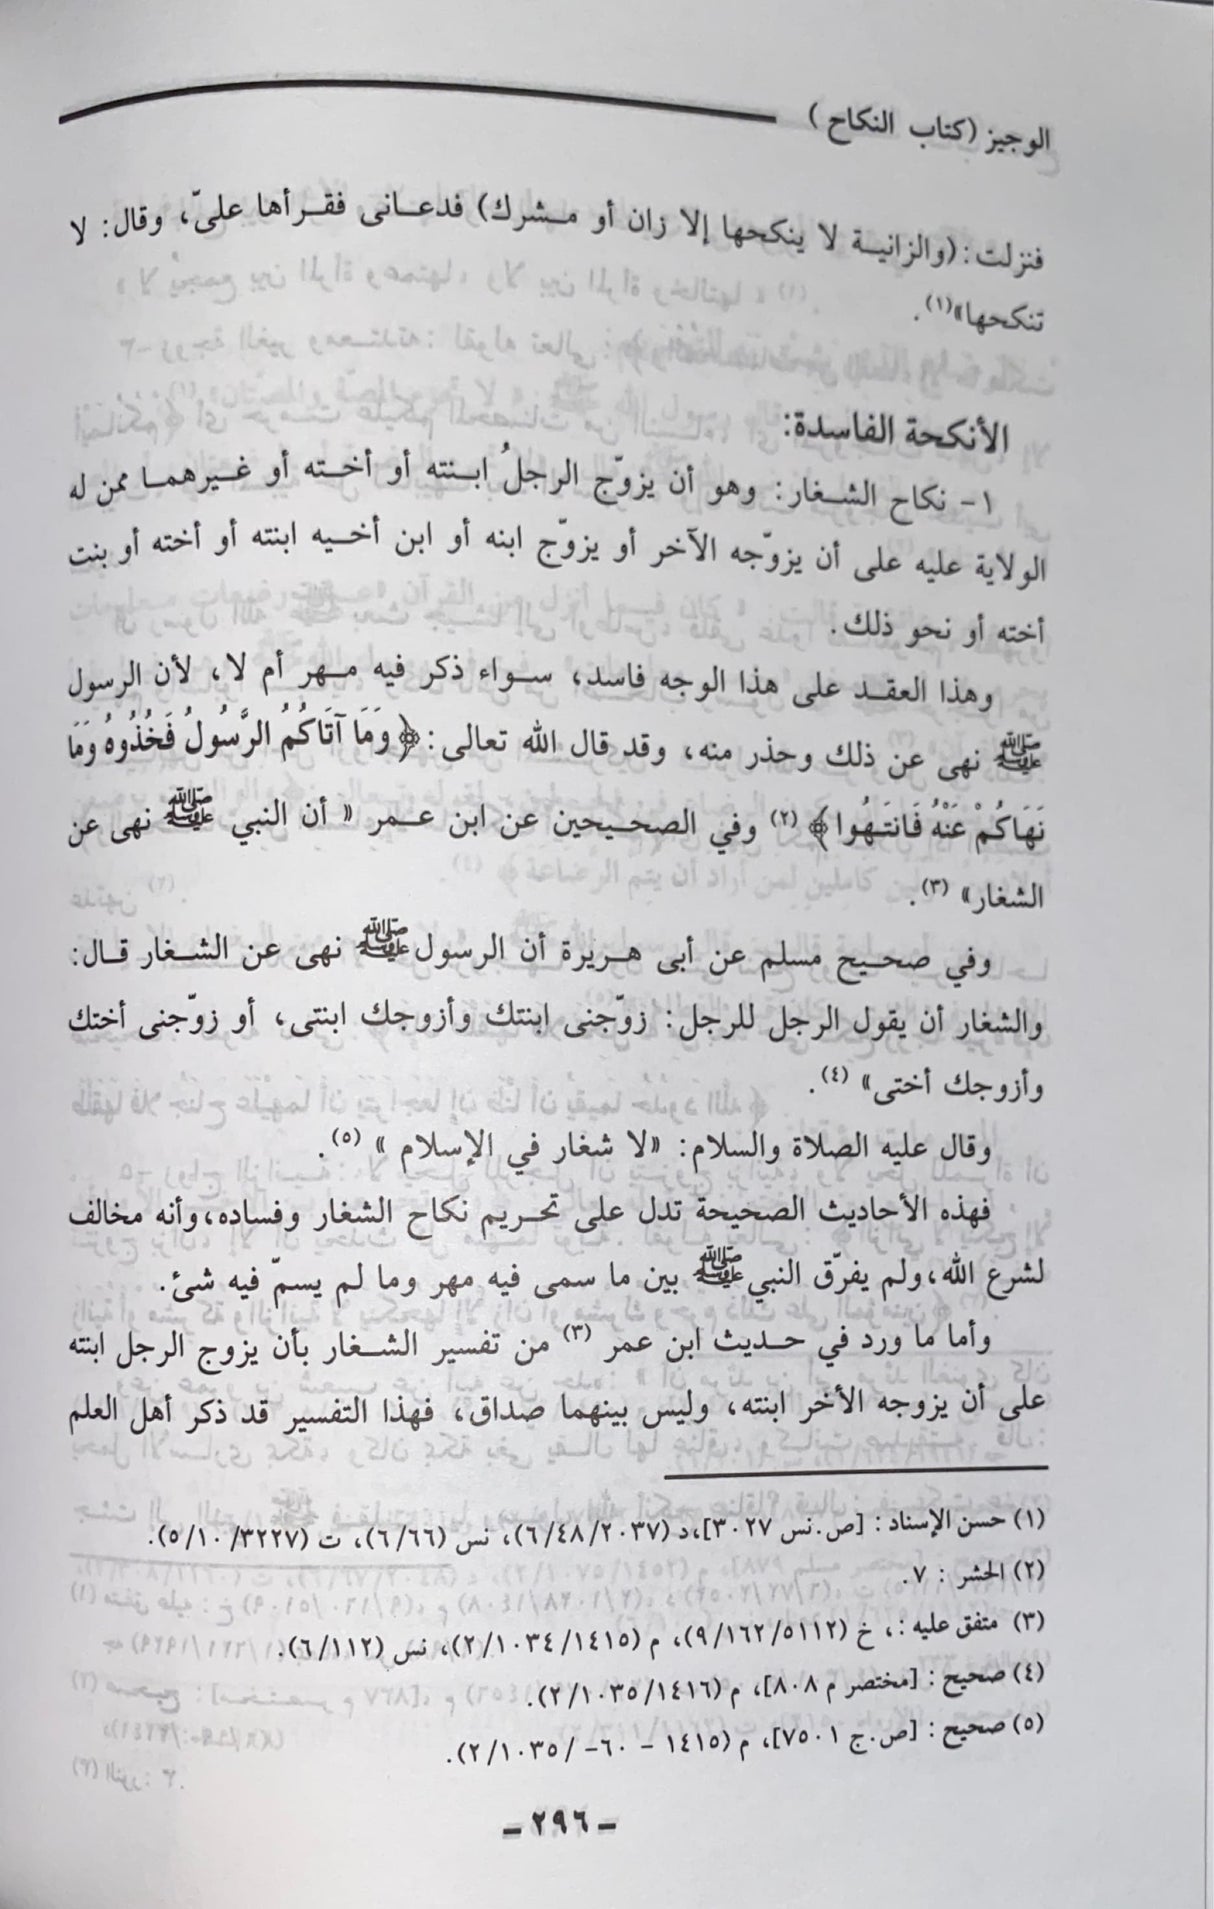 الوجيز (كتاب النكاح )
فنزلت: (والزانية لا ينكحها إلا زان أو مشرك) فدعانى فقرأها علىّ، وقال: لا
تنكحها»(١).
الأنكحة الفاسدة:
١- نكاح الشغار: وهو أن يزوّج الرجلُ ابنته أو أخته أو غيرهما ممن له
الولاية عليه على أن يزوّجه الآخر أو يزوّج ابنه أو ابن أخيه ابنته أو أخته أو بنت
أخته أو نحو ذلك.
وهذا العقد على هذا الوجه فاسد، سواء ذكر فيه مهر أم لا، لأن الرسول
ﷺ نهى عن ذلك وحذر منه، وقد قال الله تعالى: ﴿ وَمَا آتَاكُمُ الرَّسُولُ فَخُذُوهُ وَمَا
نَهَاكُمْ عَنْهُ فَانتَهُوا ﴾ (٢) وفي الصحيحين عن ابن عمر « أن النبي ﷺ نهى عن
الشغار» (٣).
وفي صحيح مسلم عن أبى هريرة أن الرسول ﷺ نهى عن الشغار قال:
والشغار أن يقول الرجل للرجل: زوّجنى ابنتك وأزوجك ابنتى، أو زوّجنى أختك
وأزوجك أختى» (٤).
وقال عليه الصلاة والسلام: «لا شغار في الإسلام » (٥).
فهذه الأحاديث الصحيحة تدل على تحريم نكاح الشغار وفساده،وأنه مخالف
لشرع الله،ولم يفرّق النبي ﷺ بين ما سمى فيه مهر وما لم يسمّ فيه شئ.
وأما ما ورد في حديث ابن عمر (٣) من تفسير الشغار بأن يزوج الرجل ابنته
على أن يزوجه الأخر ابنته، وليس بينهما صداق، فهذا التفسير قد ذكر أهل العلم
(١) حسن الإسناد : [ص.نس ٣٠٢٧]،د (٦/٤٨/٢٠٣٧)، نس (٦/٦٦)، ت (٥/١٠/٣٢٢٧).
(٢) الحشر : ٧.
(٣) متفق عليه :، خ (٩/١٦٢/٥١١٢)، م (٢/١٠٣٤/١٤١٥)، نس (٦/١١٢).
(٤) صحيح : [مختصر م ٨٠٨]، م (٢/١٠٣٥/١٤١٦).
(٥) صحيح : [ص.ج ٧٥٠١]، م (١٤١٥ - ٦٠- /٢/١٠٣٥).
- ٢٩٦ -